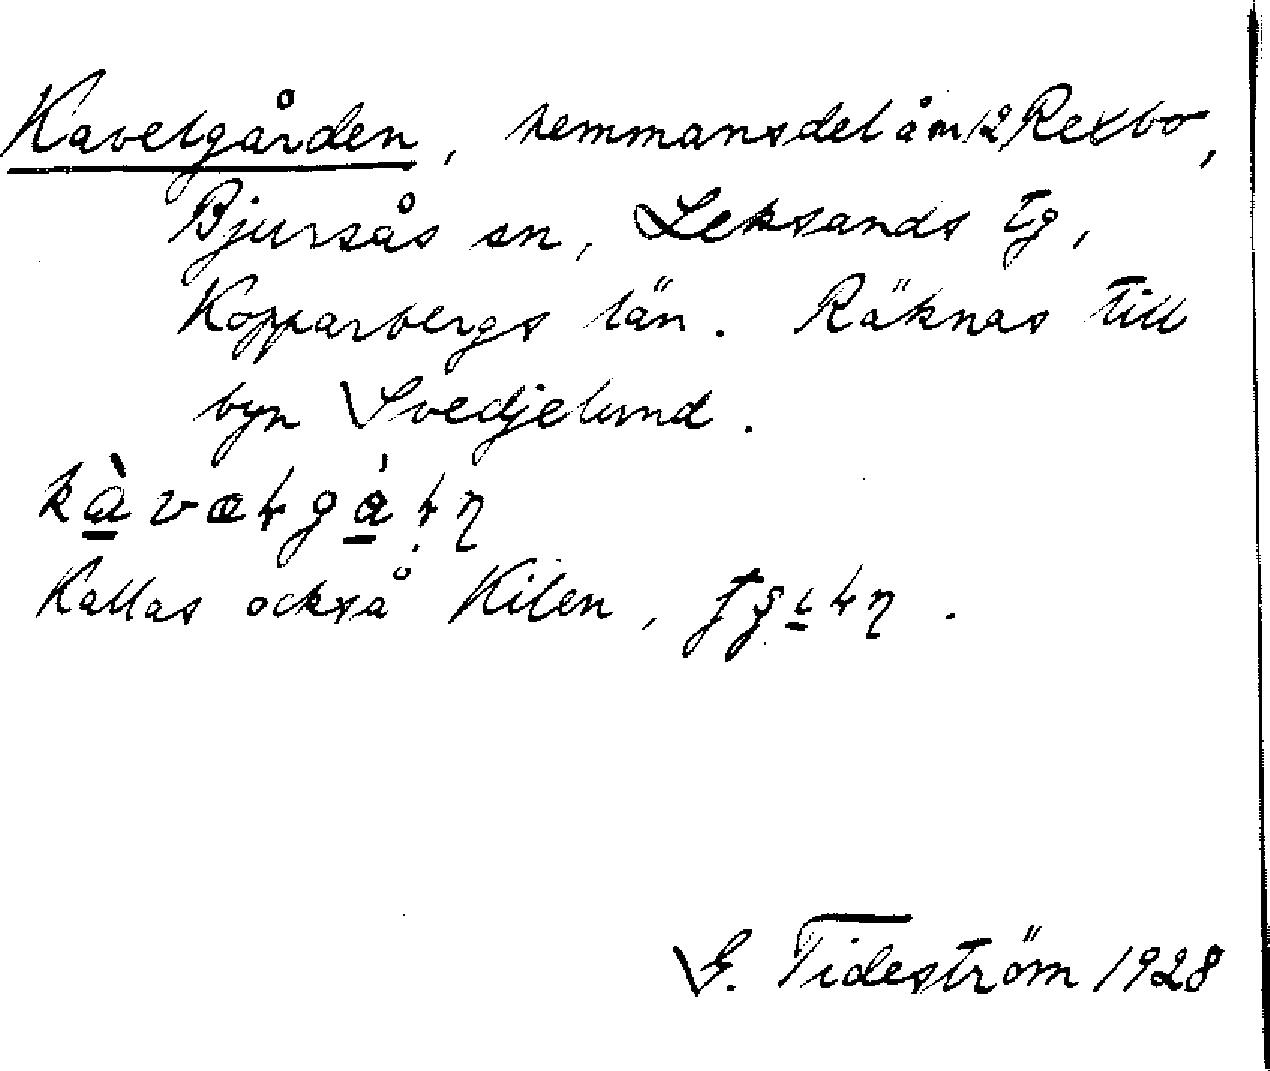 Kavelgården, hemmansdel å nr 12 Rexbo,
Bjursås sn, Leksands tg,
Kopparbergs län. Räknas till
byn Svedjelund.
Kallas också Kilen,
G. Tideström 1928